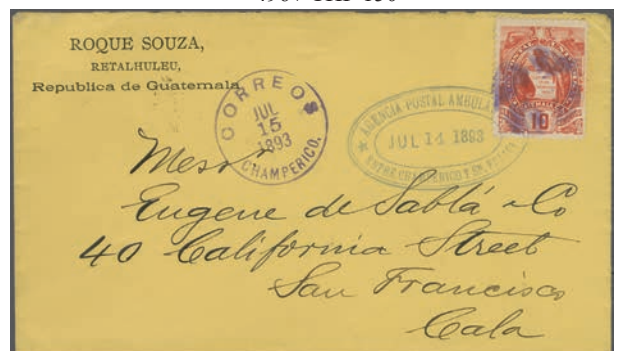 ROQUE SOUZA,
RETALHULEU,
Republica de Guatemala
CORREOS
JUL
15
1893
CHAMPERICO.
AGENCIA POSTAL AMBULA
JUL 14 1893
ENTRE CHAMPERICO Y SN.
10
Messrs
Eugene de Sablá & Co
40 California Street
San Francisco
Cala